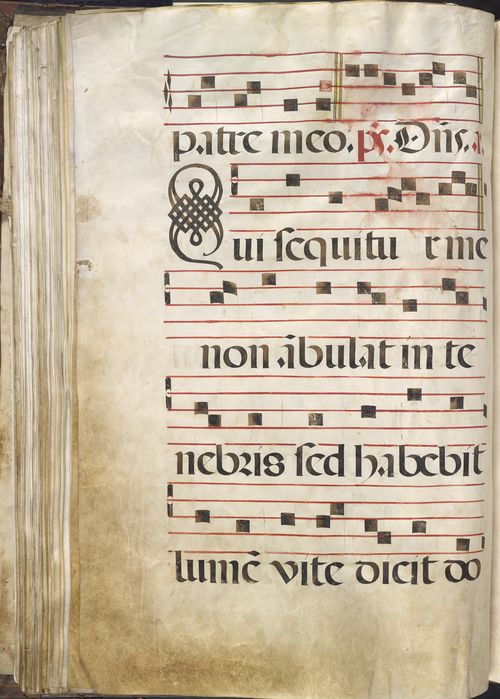 patre meo. ps. Dn̄s. a.
Qui sequitur me
non ābulat in te
nebris sed habebit
lumē vite dicit do